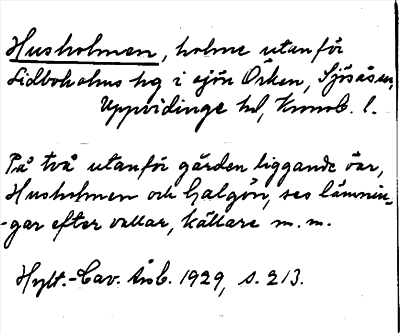 Husholmen, holme utanför
Lidboholms hg i sjön Örken, Sjösås sn,
Uppvidinge hd, Kronob. l.
På två utanför gården liggande öar,
Husholmen och Galgön, ses lämnin-
-gar efter vallar, källare m. m.
Hylt.-Cav. årsb. 1929, s. 213.